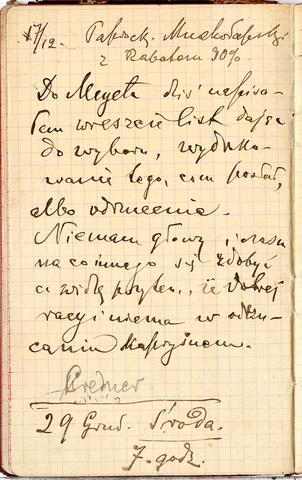 17/12.
z Rabatem 30%.
Do Meyeta dziś napisa-
łem wreszcie list dając
do wyboru, wydruko-
wanie tego, com posłał,
albo odrzucenie.
Niemam głowy i czasu
na co innego się zdobyć
a widzę przytem, iż dobrej
racyi niema w odrzu-
caniu
Credner
29 Grud. Środa.
7. godz.